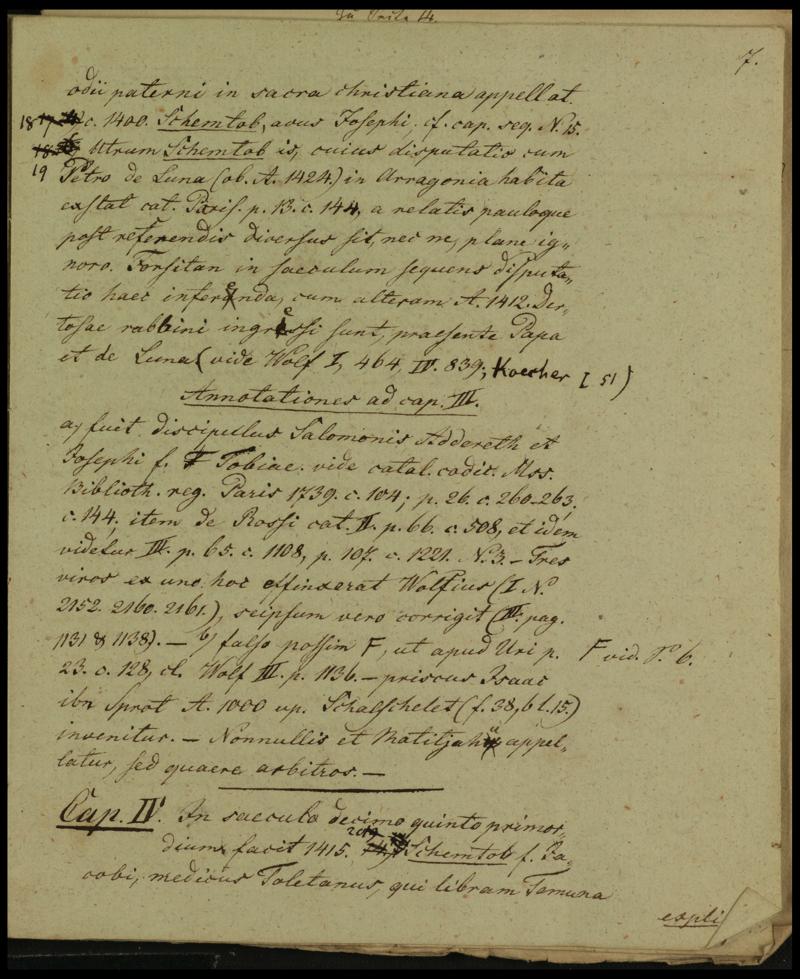 Zu Seite 14.
7.
odii paterni in sacra christiana appellat.
18 c. 1400. Schemtob, avus Josephi, cf. cap. seq. N. 15.
19 Utrum Schemtob is, cuius disputatio cum
Petro de Luna (ob. A. 1424.) in Arragonia habita
exstat cat. Paris. p. 13. c. 144, a relatis pauloque
post referendis diversus sit, nec ne, plane ig-
noro. Forsitan in saeculum sequens disputa-
tio haec inferenda, cum alteram A. 1412. Der-
tosae rabbini ingressi sunt, praesente Papa
et de Luna (vide Wolf I, 464, IV. 839; Koecher [51)
Annotationes ad cap. III.
a) fuit discipulus Salomonis Addereth et
Josephi f. Tobiae. vide catal. codic. Mss.
Biblioth. reg. Paris 1739. c. 104; p. 26. c. 260-263,
c. 144; item de Rossi cat. II. p. 66. c. 508, et idem
videtur III. p. 65. c. 1108, p. 107. c. 1221. N. 3. - Tres
viros ex uno hoc effinxerat Wolfius (I N.
2152. 2160. 2161.), seipsum vero corrigit (III. pag.
1131 & 1138). — b) falso possim F, ut apud Uri p. F vid. P. 6.
23. c. 128, cl. Wolf III. p. 1136. - priscus Isaac
ibn Sprot A. 1000 ap. Schalschelet (f. 38, b l. 15.)
invenitur. — Nonnullis et Matitjah appel-
latur, sed quaere arbitros. —
Cap. IV. In saecula decimo quinto primor-
dium facit 1415. Schemtob f. Ja-
cobi, medicus Toletanus, qui libram Temuna
expli